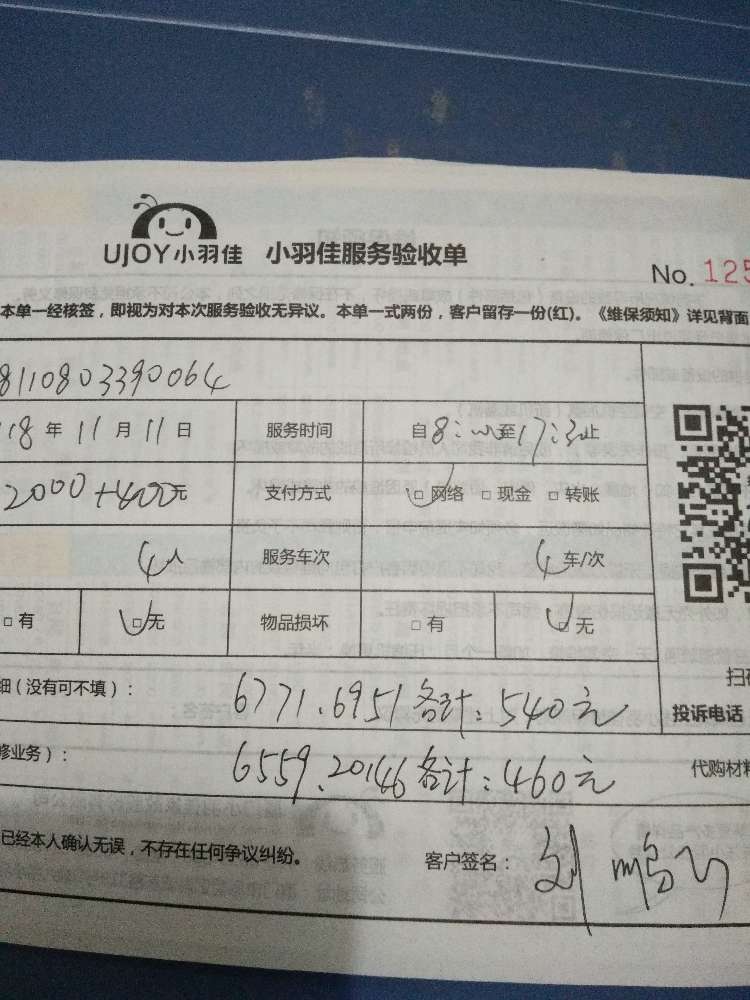 UJOY小羽佳 小羽佳服务验收单
No. 125
本单一经核签，即视为对本次服务验收无异议。本单一式两份，客户留存一份(红)。《维保须知》详见背面
8110803390064
18年11月11日 服务时间 自8:00至17:30止
2000+400元 支付方式 □网络 □现金 □转账
4人 服务车次 4车/次
□有 □无 物品损坏 □有 □无
扫码
细（没有可不填）： 6771.6951各计：540元 投诉电话
修业务）： 6559.20146各计：460元 代购材料
已经本人确认无误，不存在任何争议纠纷。 客户签名： 刘